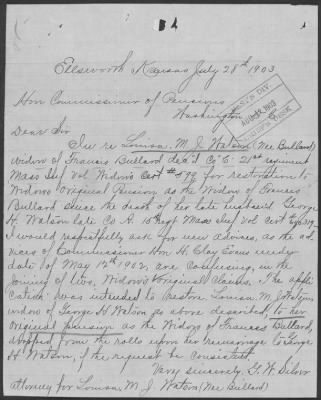 Ellsworth Kansas July 28th 1903
Hon Commissioner of Pensions
Washington
Dear Sir
In re Louisa M. J. Watson (Nee Bullard)
widow of Francis Bullard Co "E" 21st regiment
Mass Inf Vol Widow's Cert for restoration to
Widow's Original Pension, as the Widow of Francis
Bullard since the death of her late husband George
H. Watson late Co A. 15th regt Mass Inf Vol Cert
I would respectfully ask for new advices, as the ad-
vices of Commissioner Hon H. Clay Evans under
date of May 12th 1902, are confusing, in the
joining of two, Widow's original Claims. The appli
cation was intended to restore Louisa M. J. Watson
widow of George H Watson as above described, to her
original pension as the Widow of Francis Bullard,
dropped from the rolls upon her remarriage to George
H. Watson, if the request be consistent.
Very sincerely, G. W.
attorney for Louisa M. J. Watson (Nee Bullard)